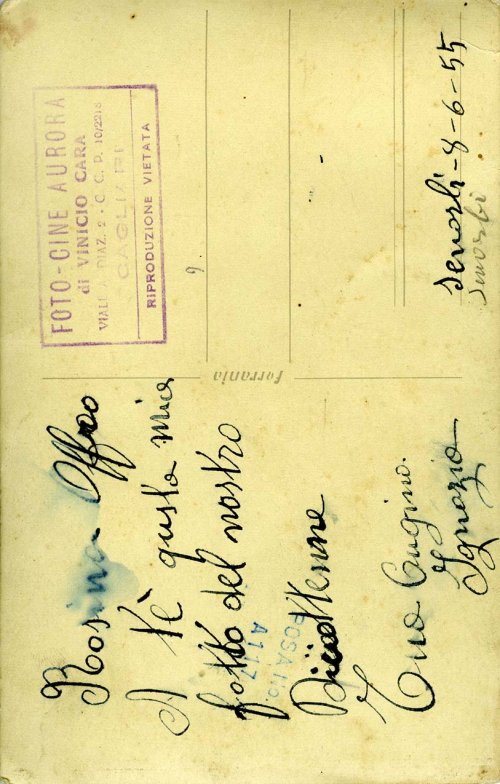 Rosina Offro
A tè questa mia
fotto del nostro
Diciottenne
Tuo Cugino.
Ignazio
POSATO
A117
ferrania
FOTO-CINE AURORA
di VINICIO CARA
VIALE A. DIAZ, 2 - C. C. P. 10/2218
CAGLIARI
RIPRODUZIONE VIETATA
9
senorbì-8-6-55